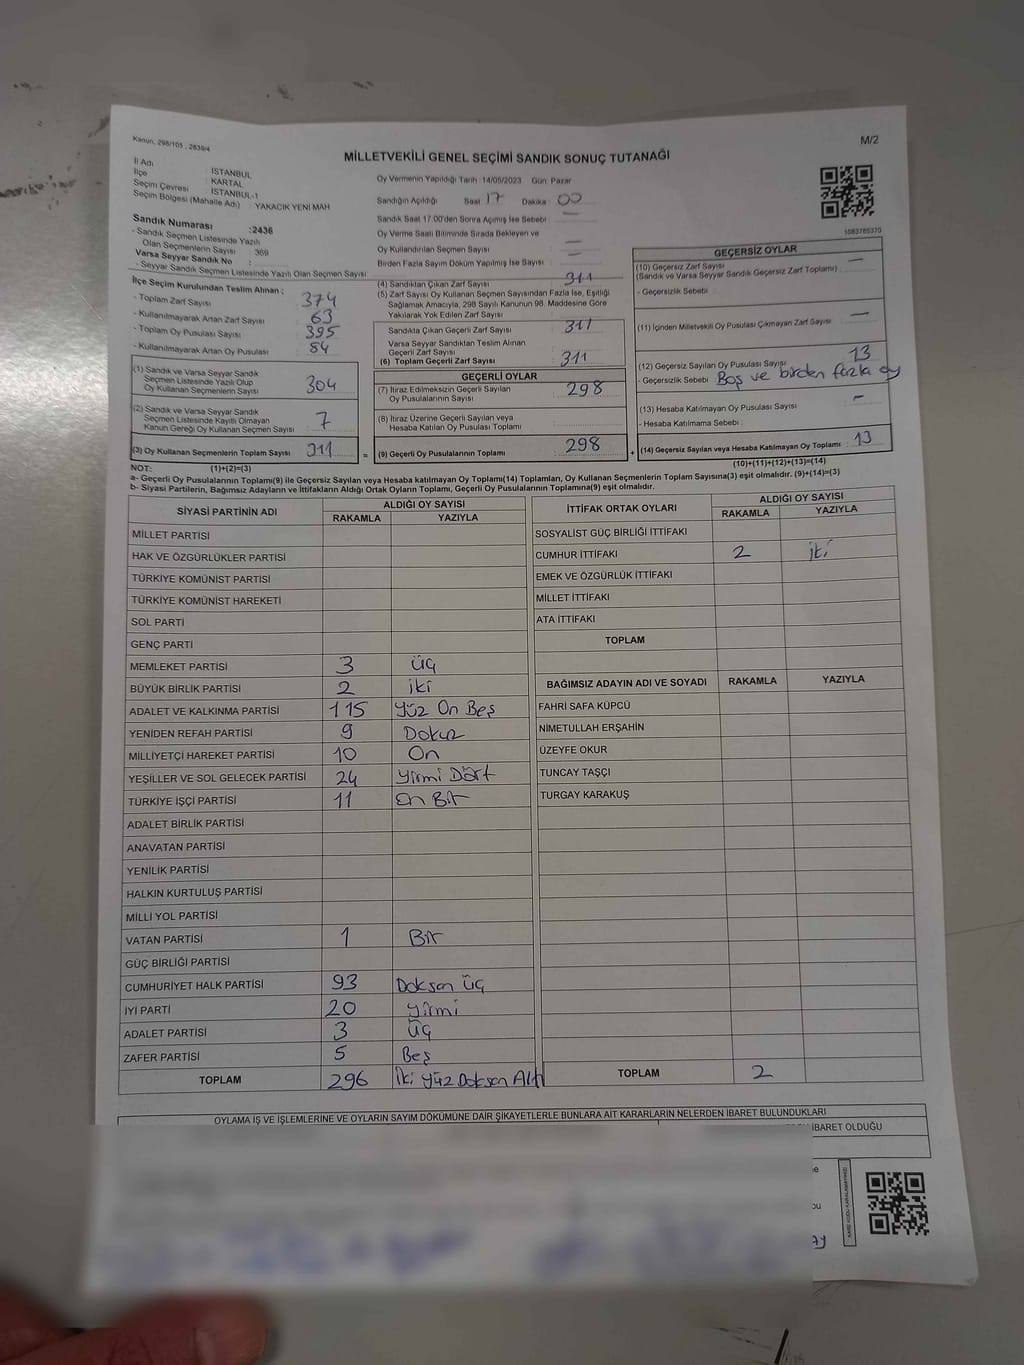 Kanun, 298/105, 2839/4
M/2
MİLLETVEKİLİ GENEL SEÇİMİ SANDIK SONUÇ TUTANAĞI
İl Adı : İSTANBUL
İlçe : KARTAL
Seçim Çevresi : İSTANBUL-1
Seçim Bölgesi (Mahalle Adı) : YAKACIK YENİ MAH
Sandık Numarası :2436
- Sandık Seçmen Listesinde Yazılı
Olan Seçmenlerin Sayısı : 369
Varsa Seyyar Sandık No :
- Seyyar Sandık Seçmen Listesinde Yazılı Olan Seçmen Sayısı :
Oy Vermenin Yapıldığı Tarih :14/05/2023 Gün: Pazar
Sandığın Açıldığı Saat 17 Dakika : 00
Sandık Saat 17:00'den Sonra Açılmış İse Sebebi : —
Oy Verme Saati Bitiminde Sırada Bekleyen ve
Oy Kullandırılan Seçmen Sayısı : —
Birden Fazla Sayım Döküm Yapılmış İse Sayısı : —
1083765370
İlçe Seçim Kurulundan Teslim Alınan :
- Toplam Zarf Sayısı : 374
- Kullanılmayarak Artan Zarf Sayısı : 63
- Toplam Oy Pusulası Sayısı : 395
- Kullanılmayarak Artan Oy Pusulası : 84
(1) Sandık ve Varsa Seyyar Sandık
Seçmen Listesinde Yazılı Olup
Oy Kullanan Seçmenlerin Sayısı : 304
(2) Sandık ve Varsa Seyyar Sandık
Seçmen Listesinde Kayıtlı Olmayan
Kanun Gereği Oy Kullanan Seçmen Sayısı : 7
(3) Oy Kullanan Seçmenlerin Toplam Sayısı : 311 =
(4) Sandıktan Çıkan Zarf Sayısı : 311
(5) Zarf Sayısı Oy Kullanan Seçmen Sayısından Fazla İse, Eşitliği
Sağlamak Amacıyla, 298 Sayılı Kanunun 98. Maddesine Göre
Yakılarak Yok Edilen Zarf Sayısı :
Sandıkta Çıkan Geçerli Zarf Sayısı : 311
Varsa Seyyar Sandıktan Teslim Alınan
Geçerli Zarf Sayısı :
(6) Toplam Geçerli Zarf Sayısı : 311
GEÇERLİ OYLAR
(7) İtiraz Edilmeksizin Geçerli Sayılan
Oy Pusulasının Sayısı : 298
(8) İtiraz Üzerine Geçerli Sayılan veya
Hesaba Katılan Oy Pusulası Toplamı :
(9) Geçerli Oy Pusulalarının Toplamı : 298 +
GEÇERSİZ OYLAR
(10) Geçersiz Zarf Sayısı : —
(Sandık ve Varsa Seyyar Sandık Geçersiz Zarf Toplamı)
- Geçersizlik Sebebi :
(11) İçinden Milletvekili Oy Pusulası Çıkmayan Zarf Sayısı : —
(12) Geçersiz Sayılan Oy Pusulası Sayısı : 13
- Geçersizlik Sebebi : Boş ve birden fazla oy
(13) Hesaba Katılmayan Oy Pusulası Sayısı : -
- Hesaba Katılmama Sebebi :
(14) Geçersiz Sayılan veya Hesaba Katılmayan Oy Toplamı : 13
NOT: (1)+(2)=(3) (10)+(11)+(12)+(13)=(14)
a- Geçerli Oy Pusulalarının Toplamı(9) ile Geçersiz Sayılan veya Hesaba katılmayan Oy Toplamı(14) Toplamları, Oy Kullanan Seçmenlerin Toplam Sayısına(3) eşit olmalıdır. (9)+(14)=(3)
b- Siyasi Partilerin, Bağımsız Adayların ve İttifakların Aldığı Ortak Oyların Toplamı, Geçerli Oy Pusulalarının Toplamına(9) eşit olmalıdır.
SİYASİ PARTİNİN ADI ALDIĞI OY SAYISI
RAKAMLA YAZIYLA
MİLLET PARTİSİ
HAK VE ÖZGÜRLÜKLER PARTİSİ
TÜRKİYE KOMÜNİST PARTİSİ
TÜRKİYE KOMÜNİST HAREKETİ
SOL PARTİ
GENÇ PARTİ
MEMLEKET PARTİSİ 3 üç
BÜYÜK BİRLİK PARTİSİ 2 iki
ADALET VE KALKINMA PARTİSİ 115 Yüz On Beş
YENİDEN REFAH PARTİSİ 9 Dokuz
MİLLİYETÇİ HAREKET PARTİSİ 10 On
YEŞİLLER VE SOL GELECEK PARTİSİ 24 Yirmi Dört
TÜRKİYE İŞÇİ PARTİSİ 11 On Bir
ADALET BİRLİK PARTİSİ
ANAVATAN PARTİSİ
YENİLİK PARTİSİ
HALKIN KURTULUŞ PARTİSİ
MİLLİ YOL PARTİSİ
VATAN PARTİSİ 1 Bir
GÜÇ BİRLİĞİ PARTİSİ
CUMHURİYET HALK PARTİSİ 93 Doksan üç
İYİ PARTİ 20 Yirmi
ADALET PARTİSİ 3 üç
ZAFER PARTİSİ 5 Beş
TOPLAM 296 İki Yüz Doksan Altı
İTTİFAK ORTAK OYLARI ALDIĞI OY SAYISI
RAKAMLA YAZIYLA
SOSYALİST GÜÇ BİRLİĞİ İTTİFAKI
CUMHUR İTTİFAKI 2 iki
EMEK VE ÖZGÜRLÜK İTTİFAKI
MİLLET İTTİFAKI
ATA İTTİFAKI
TOPLAM
BAĞIMSIZ ADAYIN ADI VE SOYADI RAKAMLA YAZIYLA
FAHRİ SAFA KÜPCÜ
NİMETULLAH ERŞAHİN
ÜZEYFE OKUR
TUNCAY TAŞÇI
TURGAY KARAKUŞ
TOPLAM 2
OYLAMA İŞ VE İŞLEMLERİNE VE OYLARIN SAYIM DÖKÜMÜNE DAİR ŞİKAYETLERLE BUNLARA AİT KARARLARIN NELERDEN İBARET BULUNDUKLARI
İBARET OLDUĞU